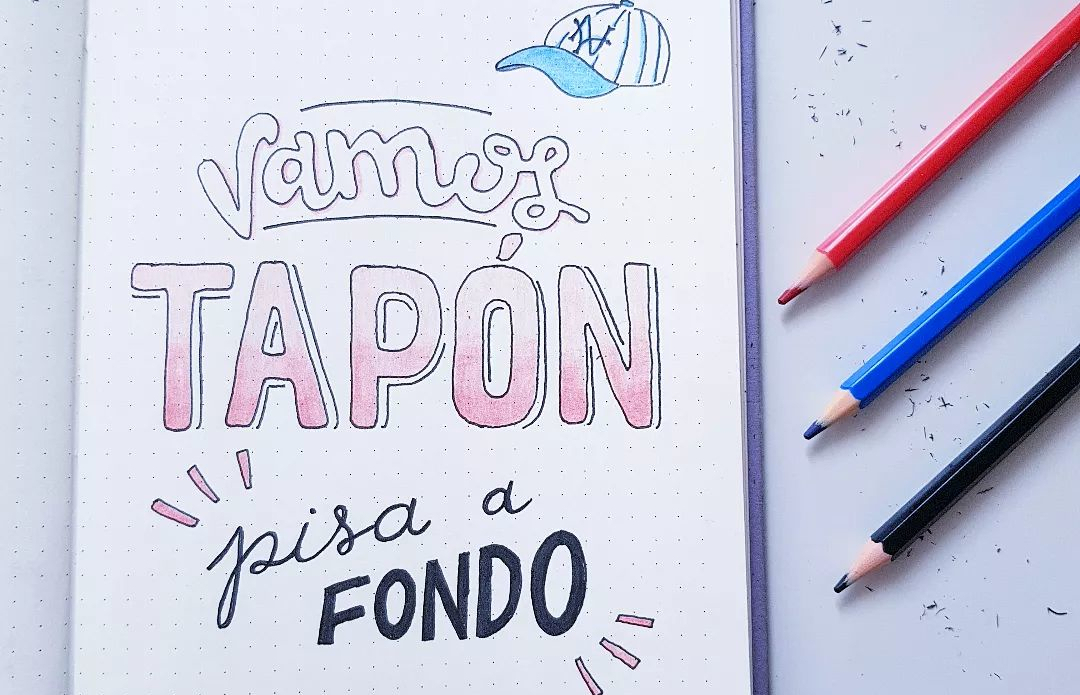 vamos
TAPÓN
pisa a
FONDO